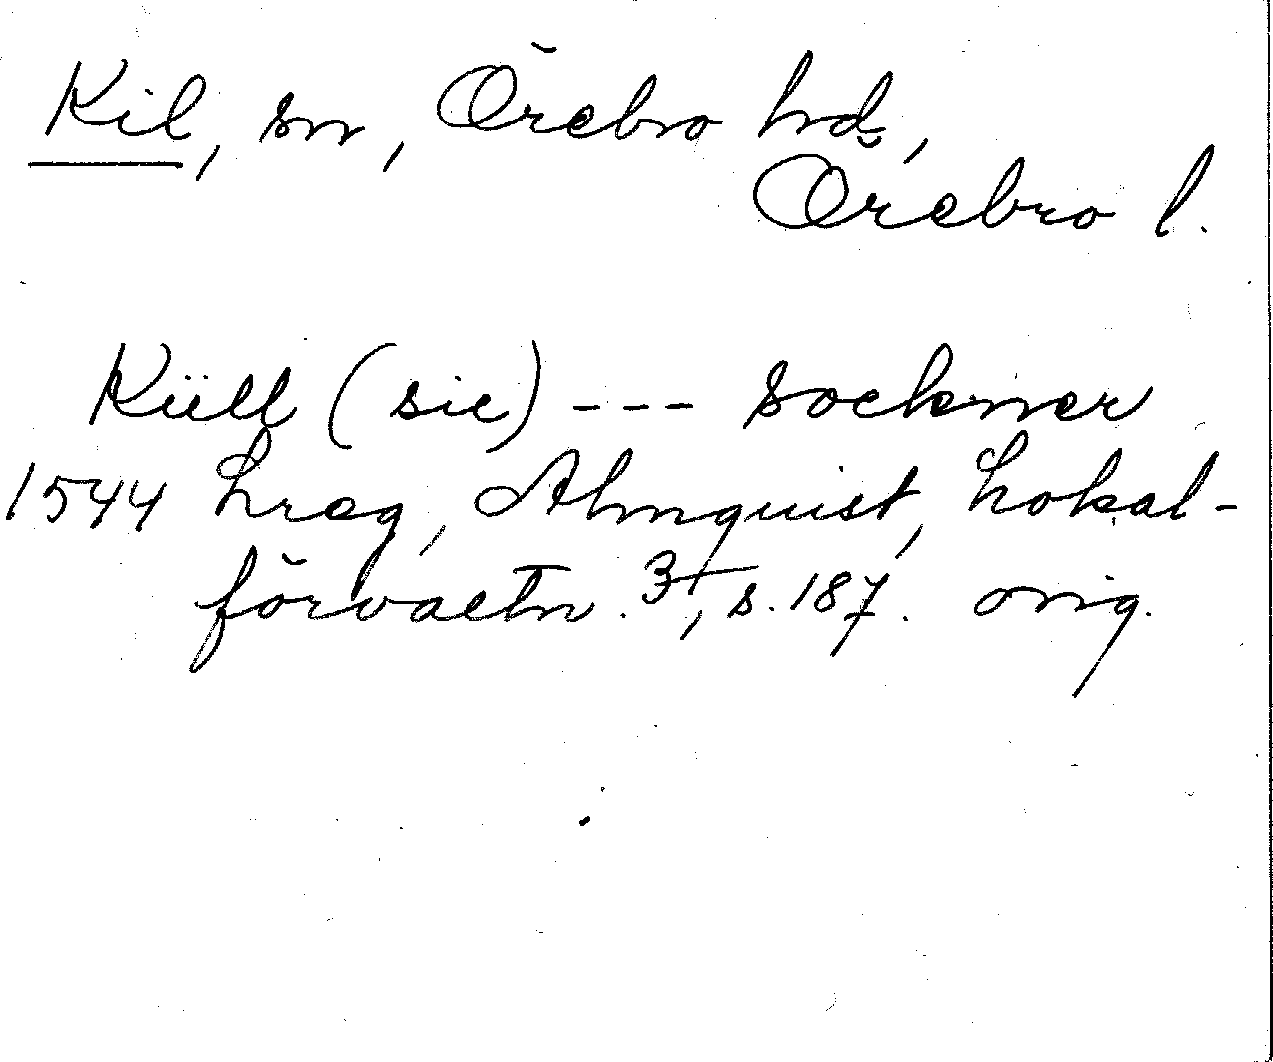 Kil, sn, Örebro hd,
Örebro l.
Küll (sic) --- sockner
1544 Lreg, Almquist, Lokal-
förvaltn. 3, s. 187. orig.